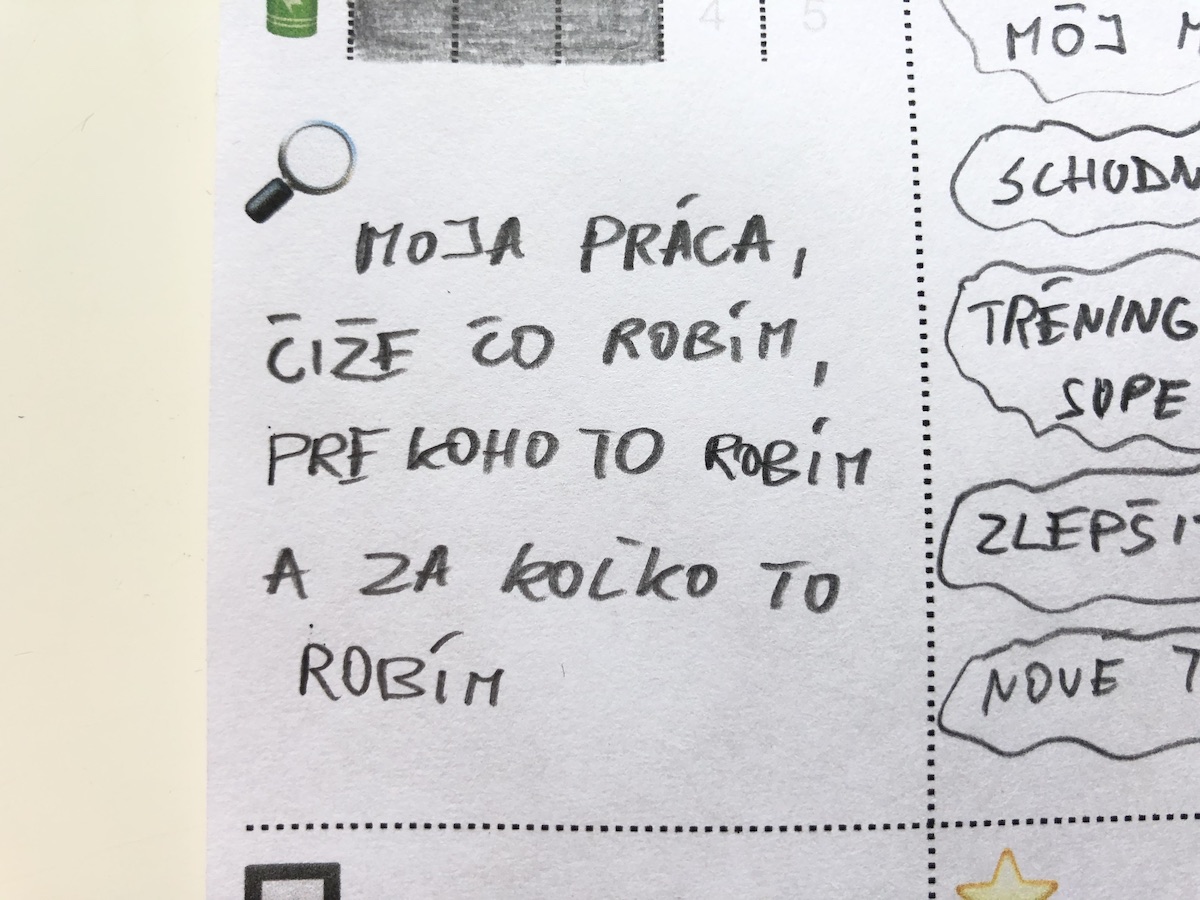 4 5
MOJA PRÁCA,
ČIŽE ČO ROBÍM,
PRE KOHO TO ROBÍM
A ZA KOĽKO TO
ROBÍM
MÔJ
SCHODN
TRÉNING
SUPE
ZLEPŠI
NOVE T